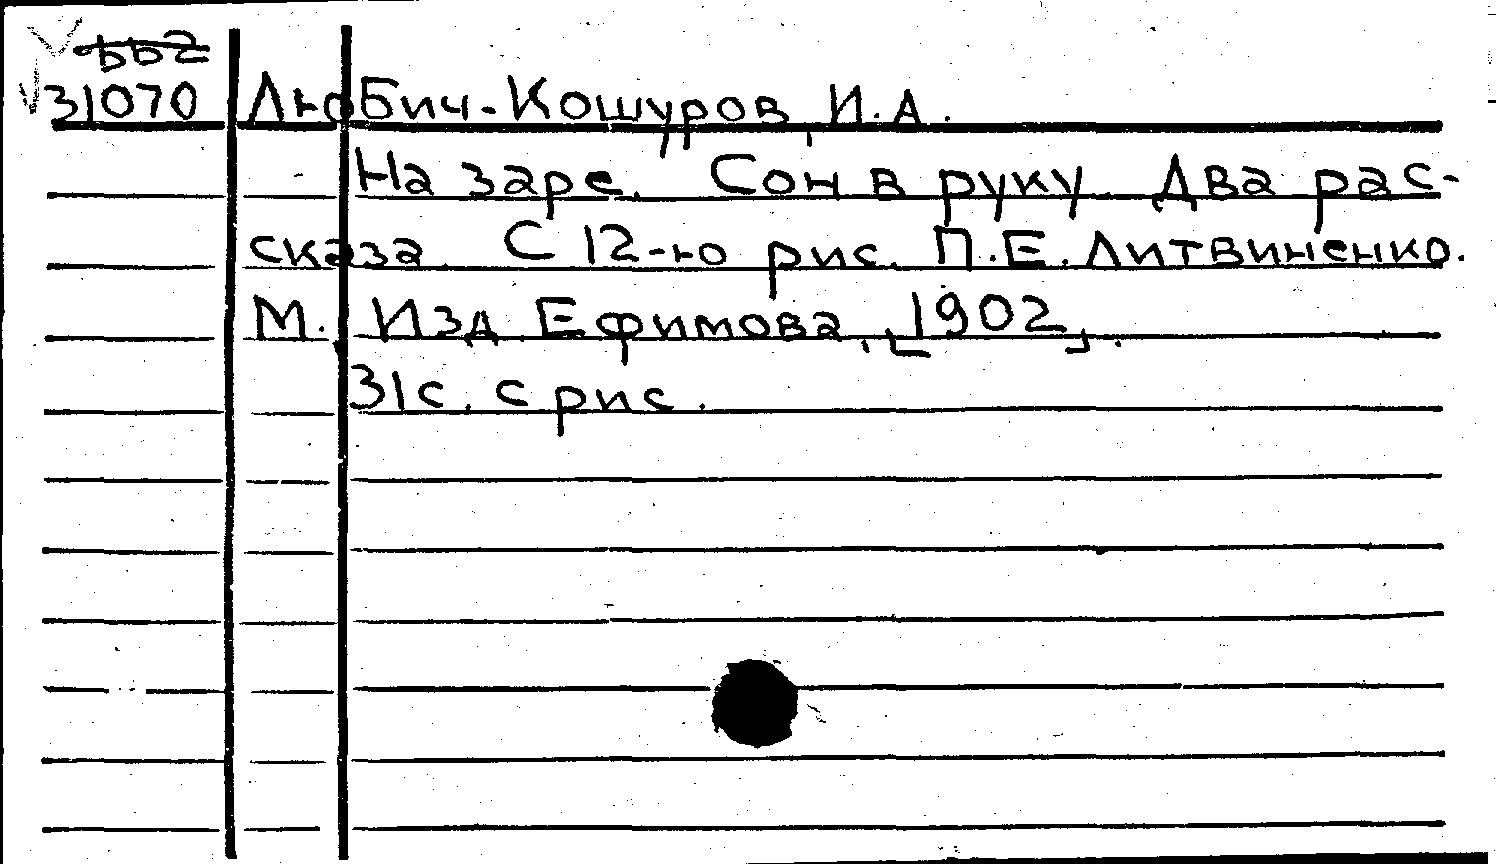 31070 Любич-Кошуров, И.А.
На заре. Сон в руку. Два рас-
сказа. С 12-ю рис. П.Е. Литвиненко.
М., Изд. Ефимова, [1902].
31с. с рис.